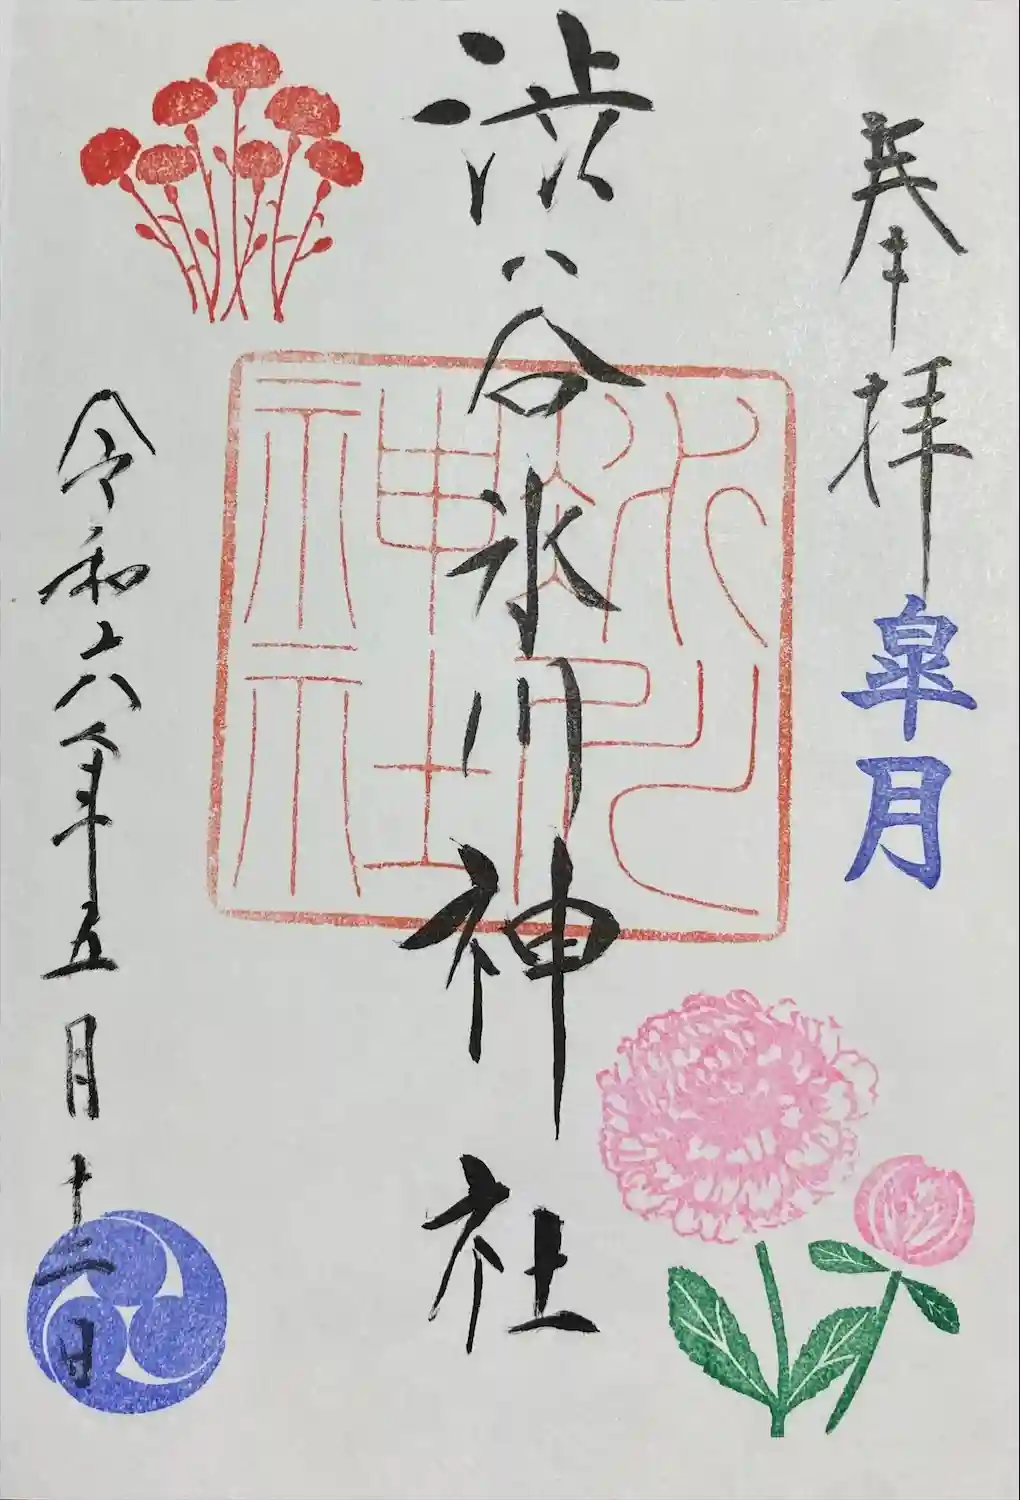 奉拝
皐月
渋谷氷川神社
令和六年五月十二日